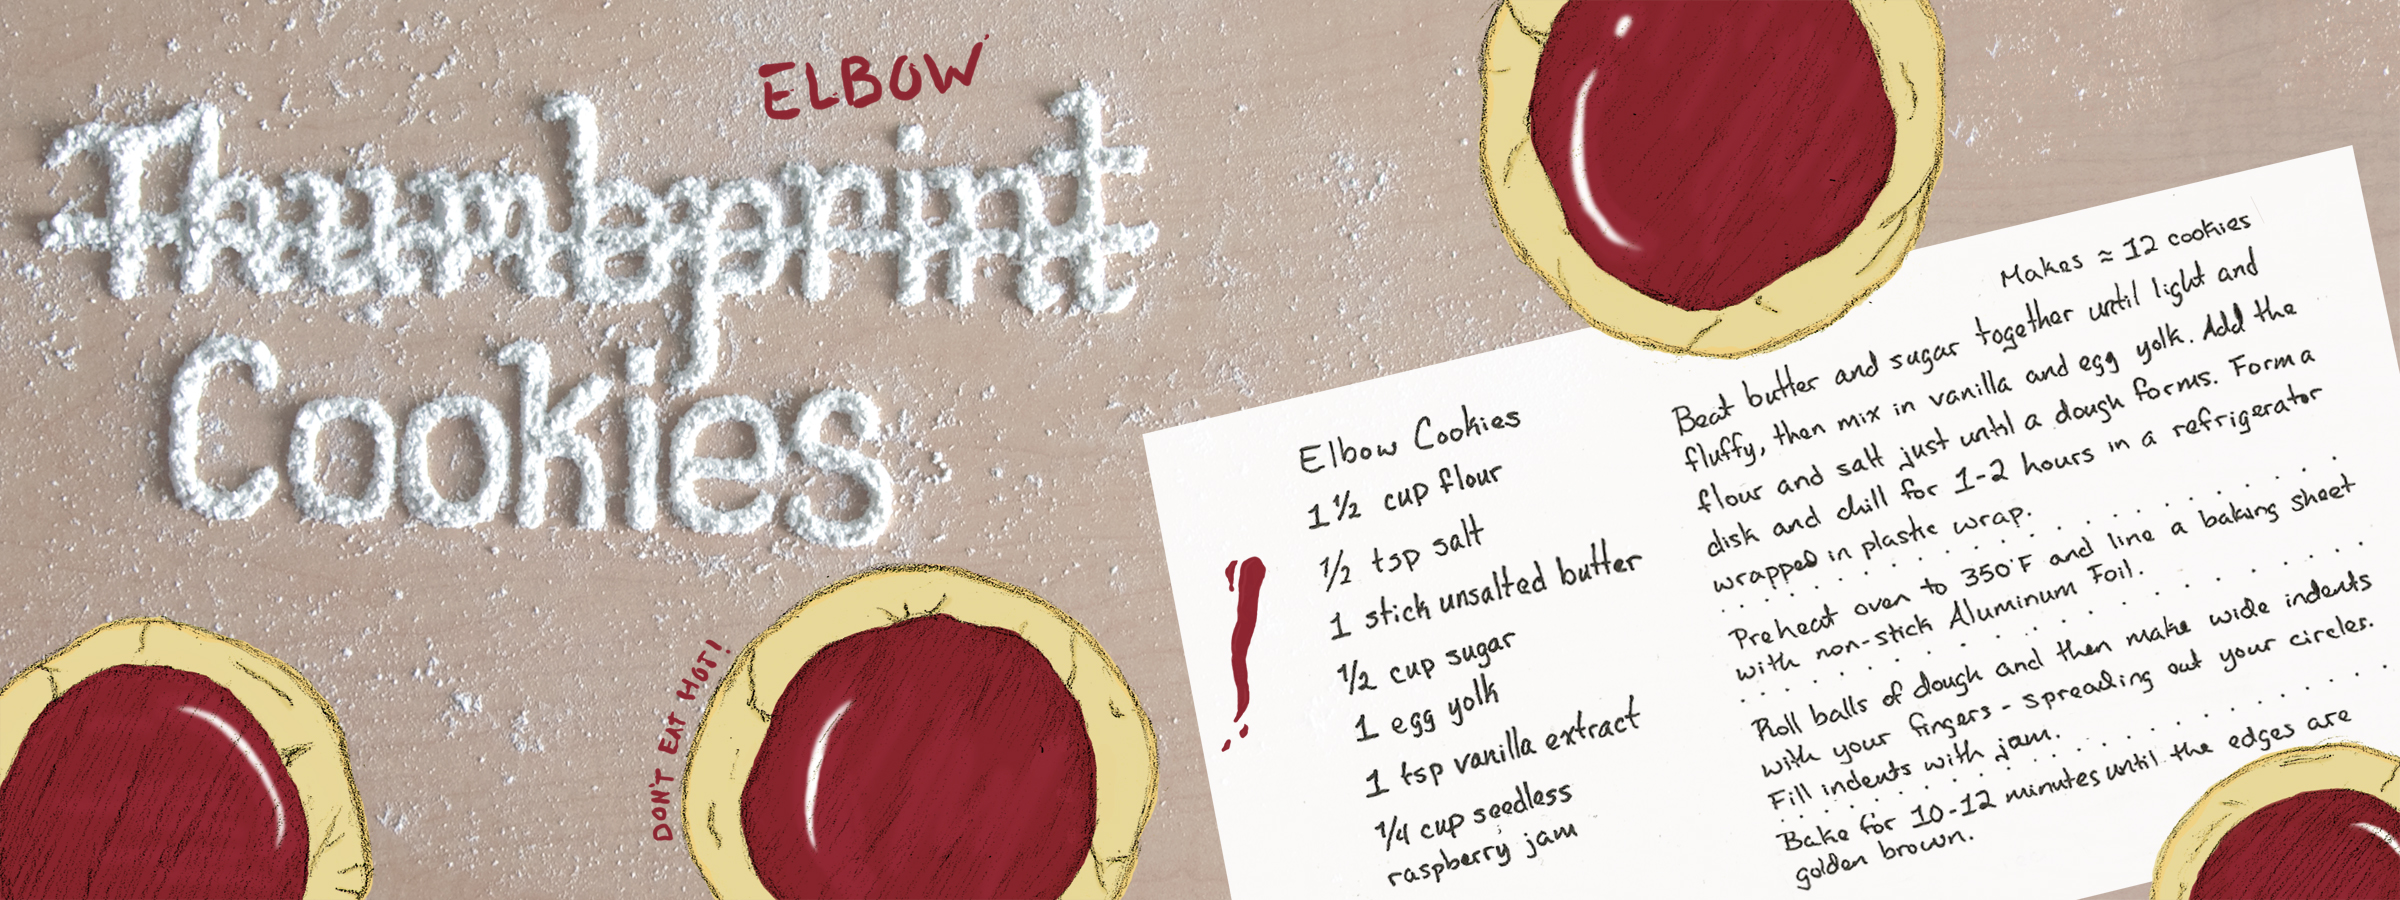 ELBOW
Thumbprint
Cookies
DON'T EAT HOT!
Elbow Cookies
1 1/2 cup flour
1/2 tsp salt
1 stick unsalted butter
1/2 cup sugar
1 egg yolk
1 tsp vanilla extract
1/4 cup seedless
raspberry jam
!
Makes ≈ 12 cookies
Beat butter and sugar together until light and
fluffy, then mix in vanilla and egg yolk. Add the
flour and salt just until a dough forms. Form a
disk and chill for 1-2 hours in a refrigerator
wrapped in plastic wrap.
Preheat oven to 350°F and line a baking sheet
with non-stick Aluminum Foil.
Roll balls of dough and then make wide indents
with your fingers - spreading out your circles.
Fill indents with jam.
Bake for 10-12 minutes until the edges are
golden brown.